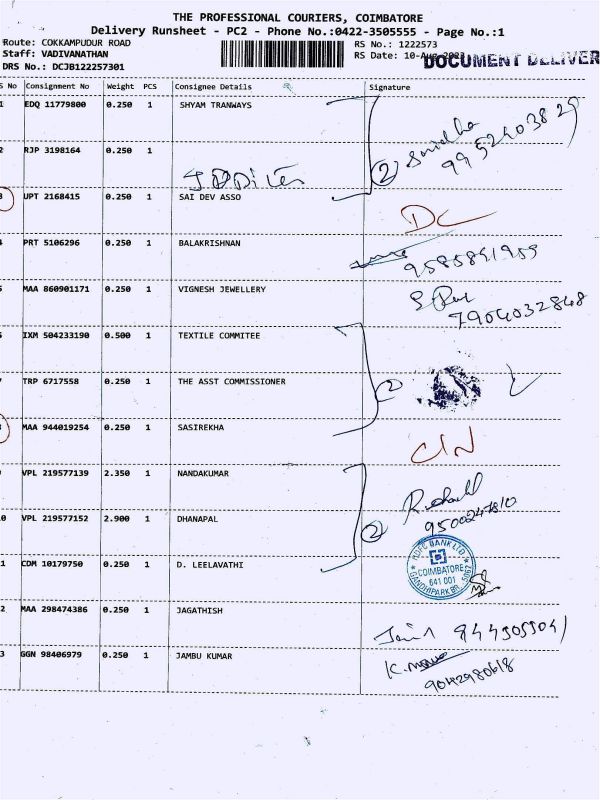 THE PROFESSIONAL COURIERS, COIMBATORE
Delivery Runsheet - PC2 - Phone No.:0422-3505555 - Page No.:1
Route: COKKAMPUDUR ROAD
RS No.: 1222573
Staff: VADIVANATHAN
RS Date: 10-Aug-2023
DOCUMENT DELIVER
DRS No.: DCJB122257301
S No Consignment No Weight PCS Consignee Details Signature
1 EDQ 11779800 0.250 1 SHYAM TRANWAYS
2 9952403829
2 RJP 3198164 0.250 1
3 UPT 2168415 0.250 1 SAI DEV ASSO
DC
4 PRT 5106296 0.250 1 BALAKRISHNAN
9585891959
5 MAA 860901171 0.250 1 VIGNESH JEWELLERY
7904032848
6 IXM 504233190 0.500 1 TEXTILE COMMITEE
7 TRP 6717558 0.250 1 THE ASST COMMISSIONER
2
8 MAA 944019254 0.250 1 SASIREKHA
C/N
9 VPL 219577139 2.350 1 NANDAKUMAR
10 VPL 219577152 2.900 1 DHANAPAL
2
HDFC BANK LTD.
COIMBATORE
641 001
GANDHIPARK BR.
11 CDM 10179750 0.250 1 D. LEELAVATHI
12 MAA 298474386 0.250 1 JAGATHISH
13 GGN 98406979 0.250 1 JAMBU KUMAR
9042980618